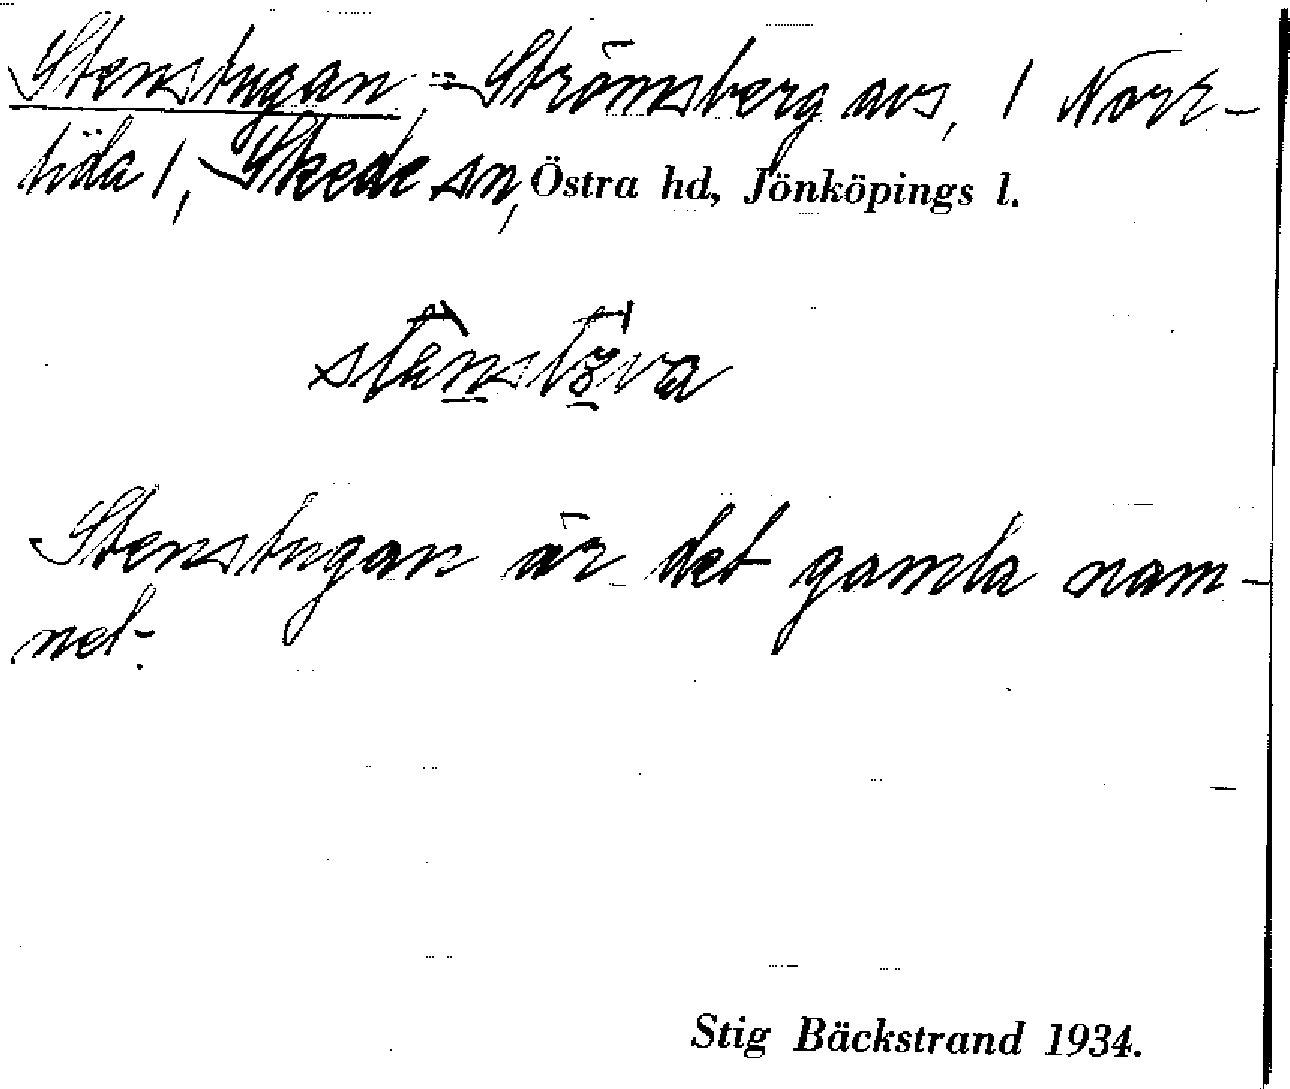 Stenstugan = Strömsberg avs, / Norr-
tida /, Skede sn, Östra hd, Jönköpings l.
Stenstugan är det gamla nam-
net.
Stig Bäckstrand 1934.